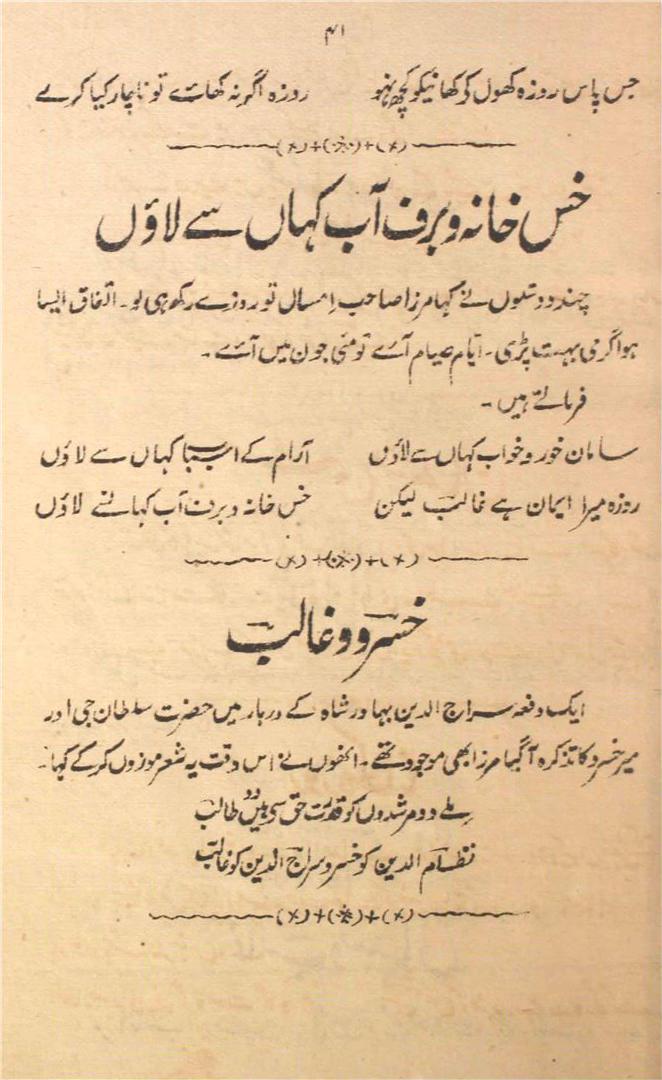 ۴۱
جس پاس روزہ کھول کر کھانیکو کچھ نہو روزہ اگر نہ کھائے تو ناچار کیا کرے
خس خانہ و برف آب کہاں سے لاؤں
چند دوستوں نے کہا مرزا صاحب اِمسال تو روزے رکھ ہی لو۔ اتفاق ایسا
ہوا گرمی بہت پڑی۔ ایّام صیام آئے تو مئی جون میں آئے۔
فرماتے ہیں۔
سامان خور و خواب کہاں سے لاؤں آرام کے اسباب کہاں سے لاؤں
روزہ میرا ایمان ہے غالب لیکن خس خانہ و برف آب کہانسے لاؤں
خسرو و غالب
ایک دفعہ سراج الدین بہادر شاہ کے دربار میں حضرت سلطان جی اور
میر خسرو کا تذکرہ آگیا مرزا بھی موجود تھے۔ انھوں نے اس وقت یہ شعر موزوں کر کے کہا۔
ملے دو مرشدوں کو قدرت حق سے ہیں دو طالب
نظام الدین کو خسرو سراج الدین کو غالب